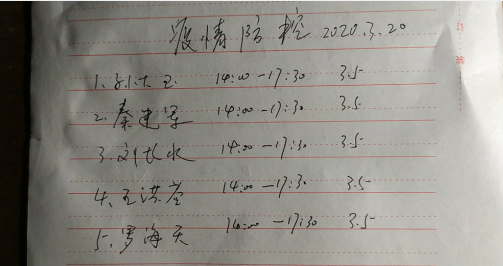 疫情防控 2020.3.20
1.孙大卫 14:00-17:30 3.5
2.秦建军 14:00-17:30 3.5
3.刘长水 14:00-17:30 3.5
4.王洪莹 14:00-17:30 3.5
5.罗海天 14:00-17:30 3.5